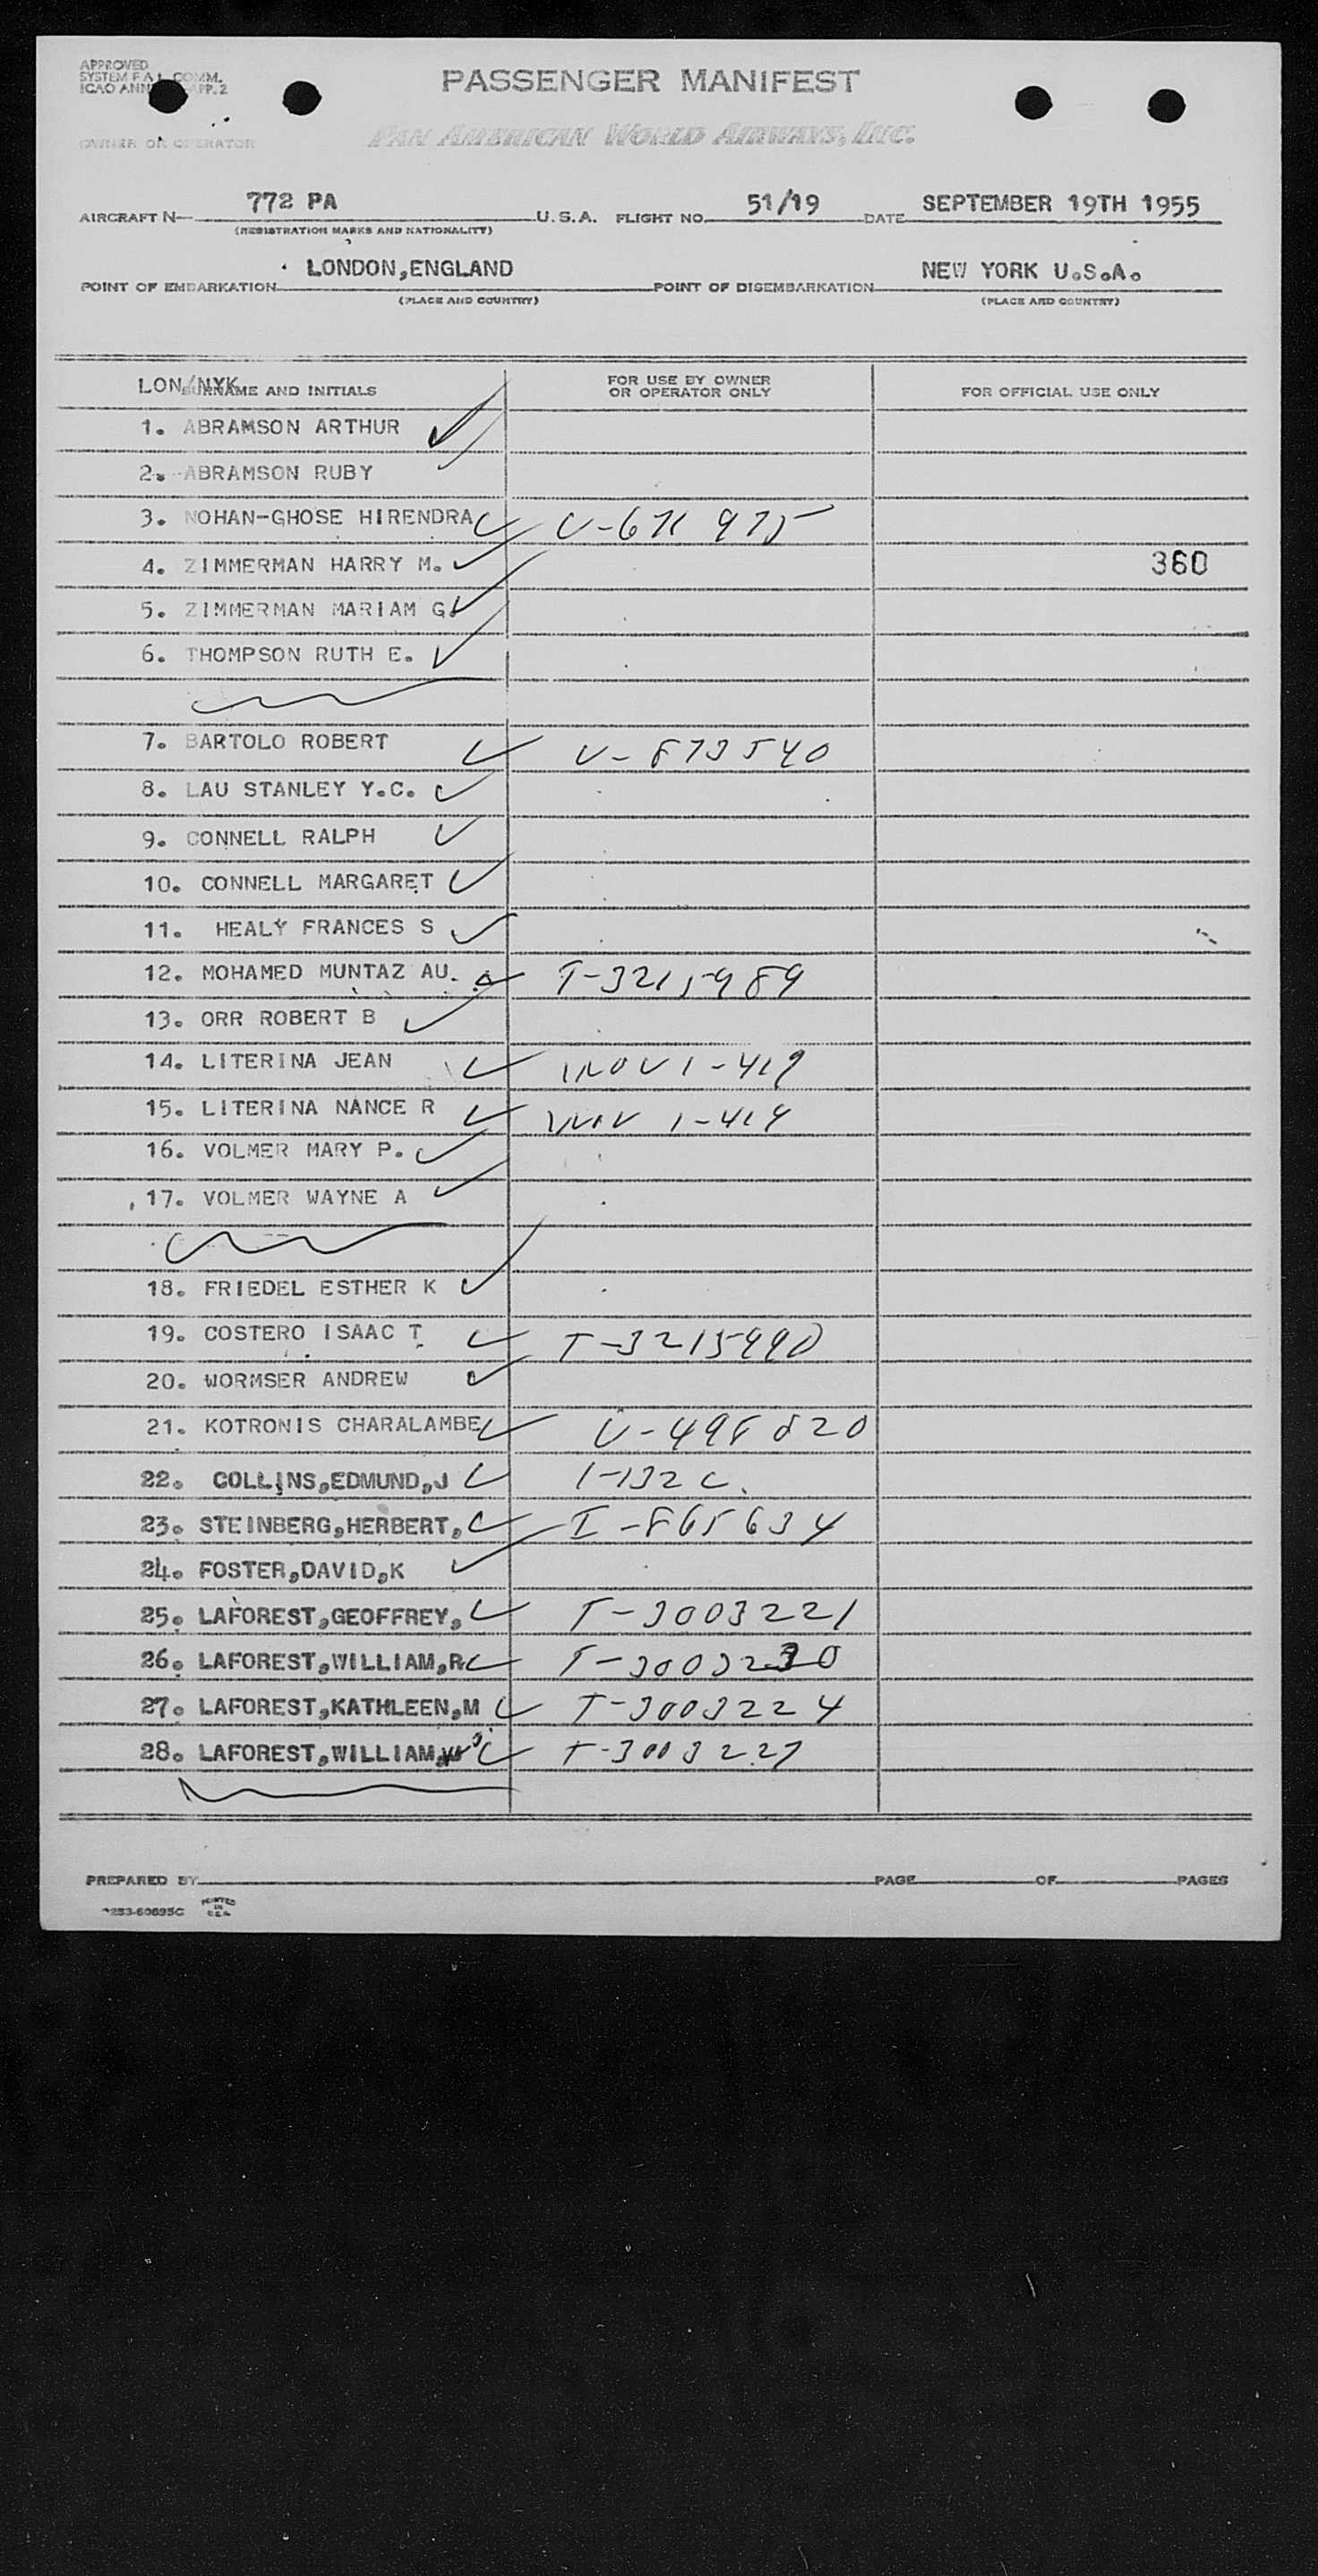 APPROVED
SYSTEM F A L COMM.
ICAO ANN APP. 2
PASSENGER MANIFEST
OWNER OR OPERATOR
PAN AMERICAN WORLD AIRWAYS, INC.
AIRCRAFT N 772 PA U.S.A. FLIGHT NO. 51/19 DATE SEPTEMBER 19TH 1955
(REGISTRATION MARKS AND NATIONALITY)
POINT OF EMBARKATION LONDON,ENGLAND POINT OF DISEMBARKATION NEW YORK U.S.A.
(PLACE AND COUNTRY) (PLACE AND COUNTRY)
LON/NYK SURNAME AND INITIALS FOR USE BY OWNER OR OPERATOR ONLY FOR OFFICIAL USE ONLY
1. ABRAMSON ARTHUR
2. ABRAMSON RUBY
3. NOHAN-GHOSE HIRENDRA V-671 975
4. ZIMMERMAN HARRY M. 360
5. ZIMMERMAN MARIAM G.
6. THOMPSON RUTH E.
7. BARTOLO ROBERT V-873540
8. LAU STANLEY Y.C.
9. CONNELL RALPH
10. CONNELL MARGARET
11. HEALY FRANCES S
12. MOHAMED MUNTAZ AU. T-3215989
13. ORR ROBERT B
14. LITERINA JEAN 1-419
15. LITERINA NANCE R 1-419
16. VOLMER MARY P.
17. VOLMER WAYNE A
18. FRIEDEL ESTHER K
19. COSTERO ISAAC T T-3215990
20. WORMSER ANDREW
21. KOTRONIS CHARALAMBE V-498820
22. COLLINS,EDMUND,J 1-132 C.
23. STEINBERG,HERBERT, I-865634
24. FOSTER,DAVID,K
25. LAFOREST,GEOFFREY, T-3003221
26. LAFOREST,WILLIAM,R T-3003230
27. LAFOREST,KATHLEEN,M T-3003224
28. LAFOREST,WILLIAM, T-3003227
PREPARED BY PAGE OF PAGES
PRINTED IN U.S.A.